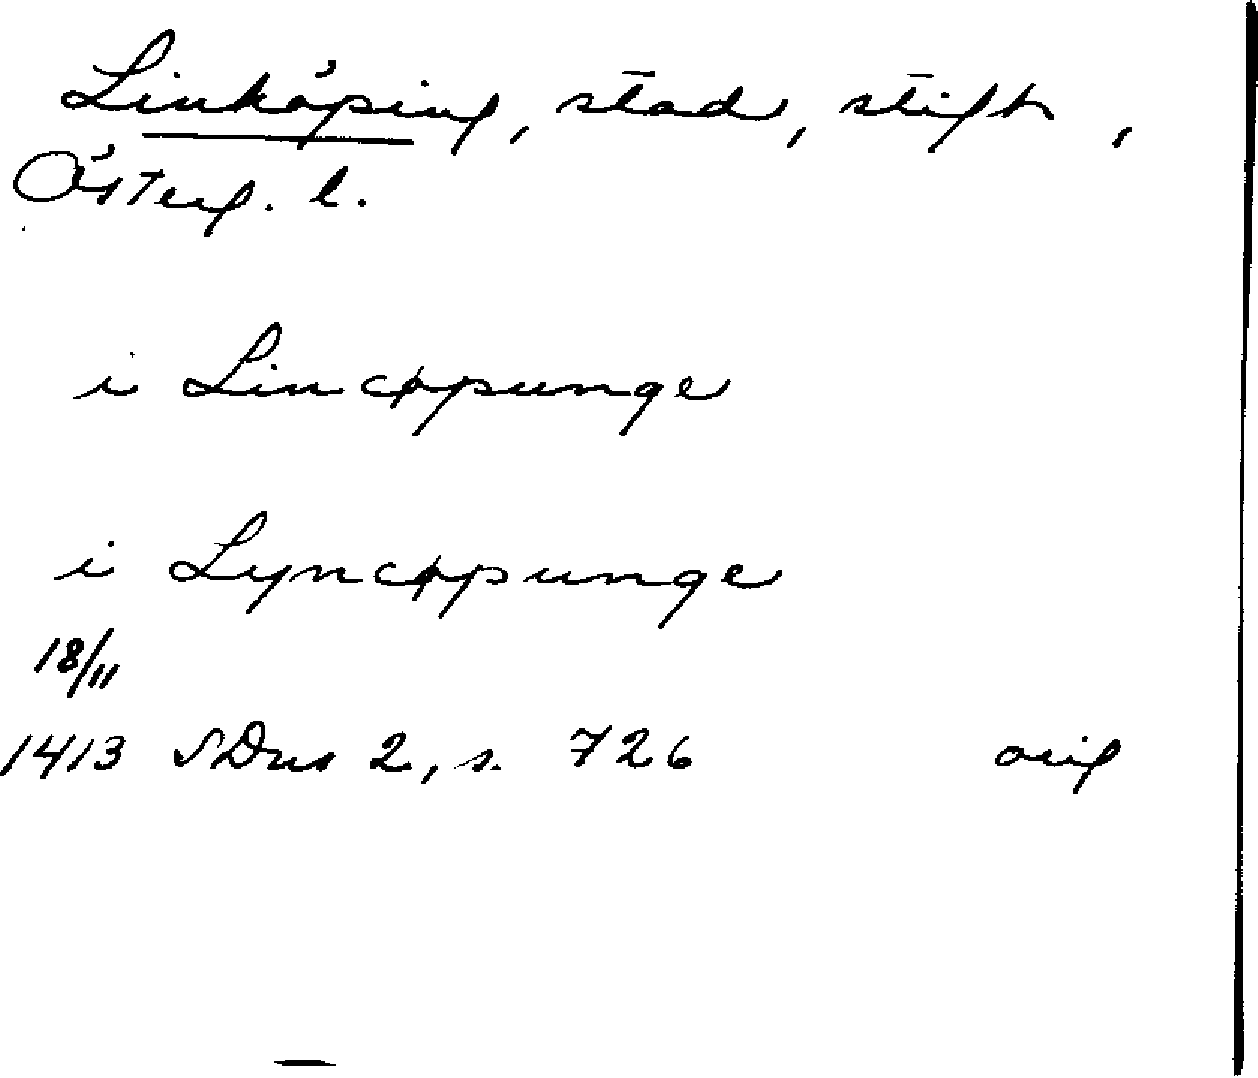 Linköping, stad, stift,
Österg. l.
i Lincøpunge
i Lyncøpunge
18/11
1413 SDns 2, s. 726 orig